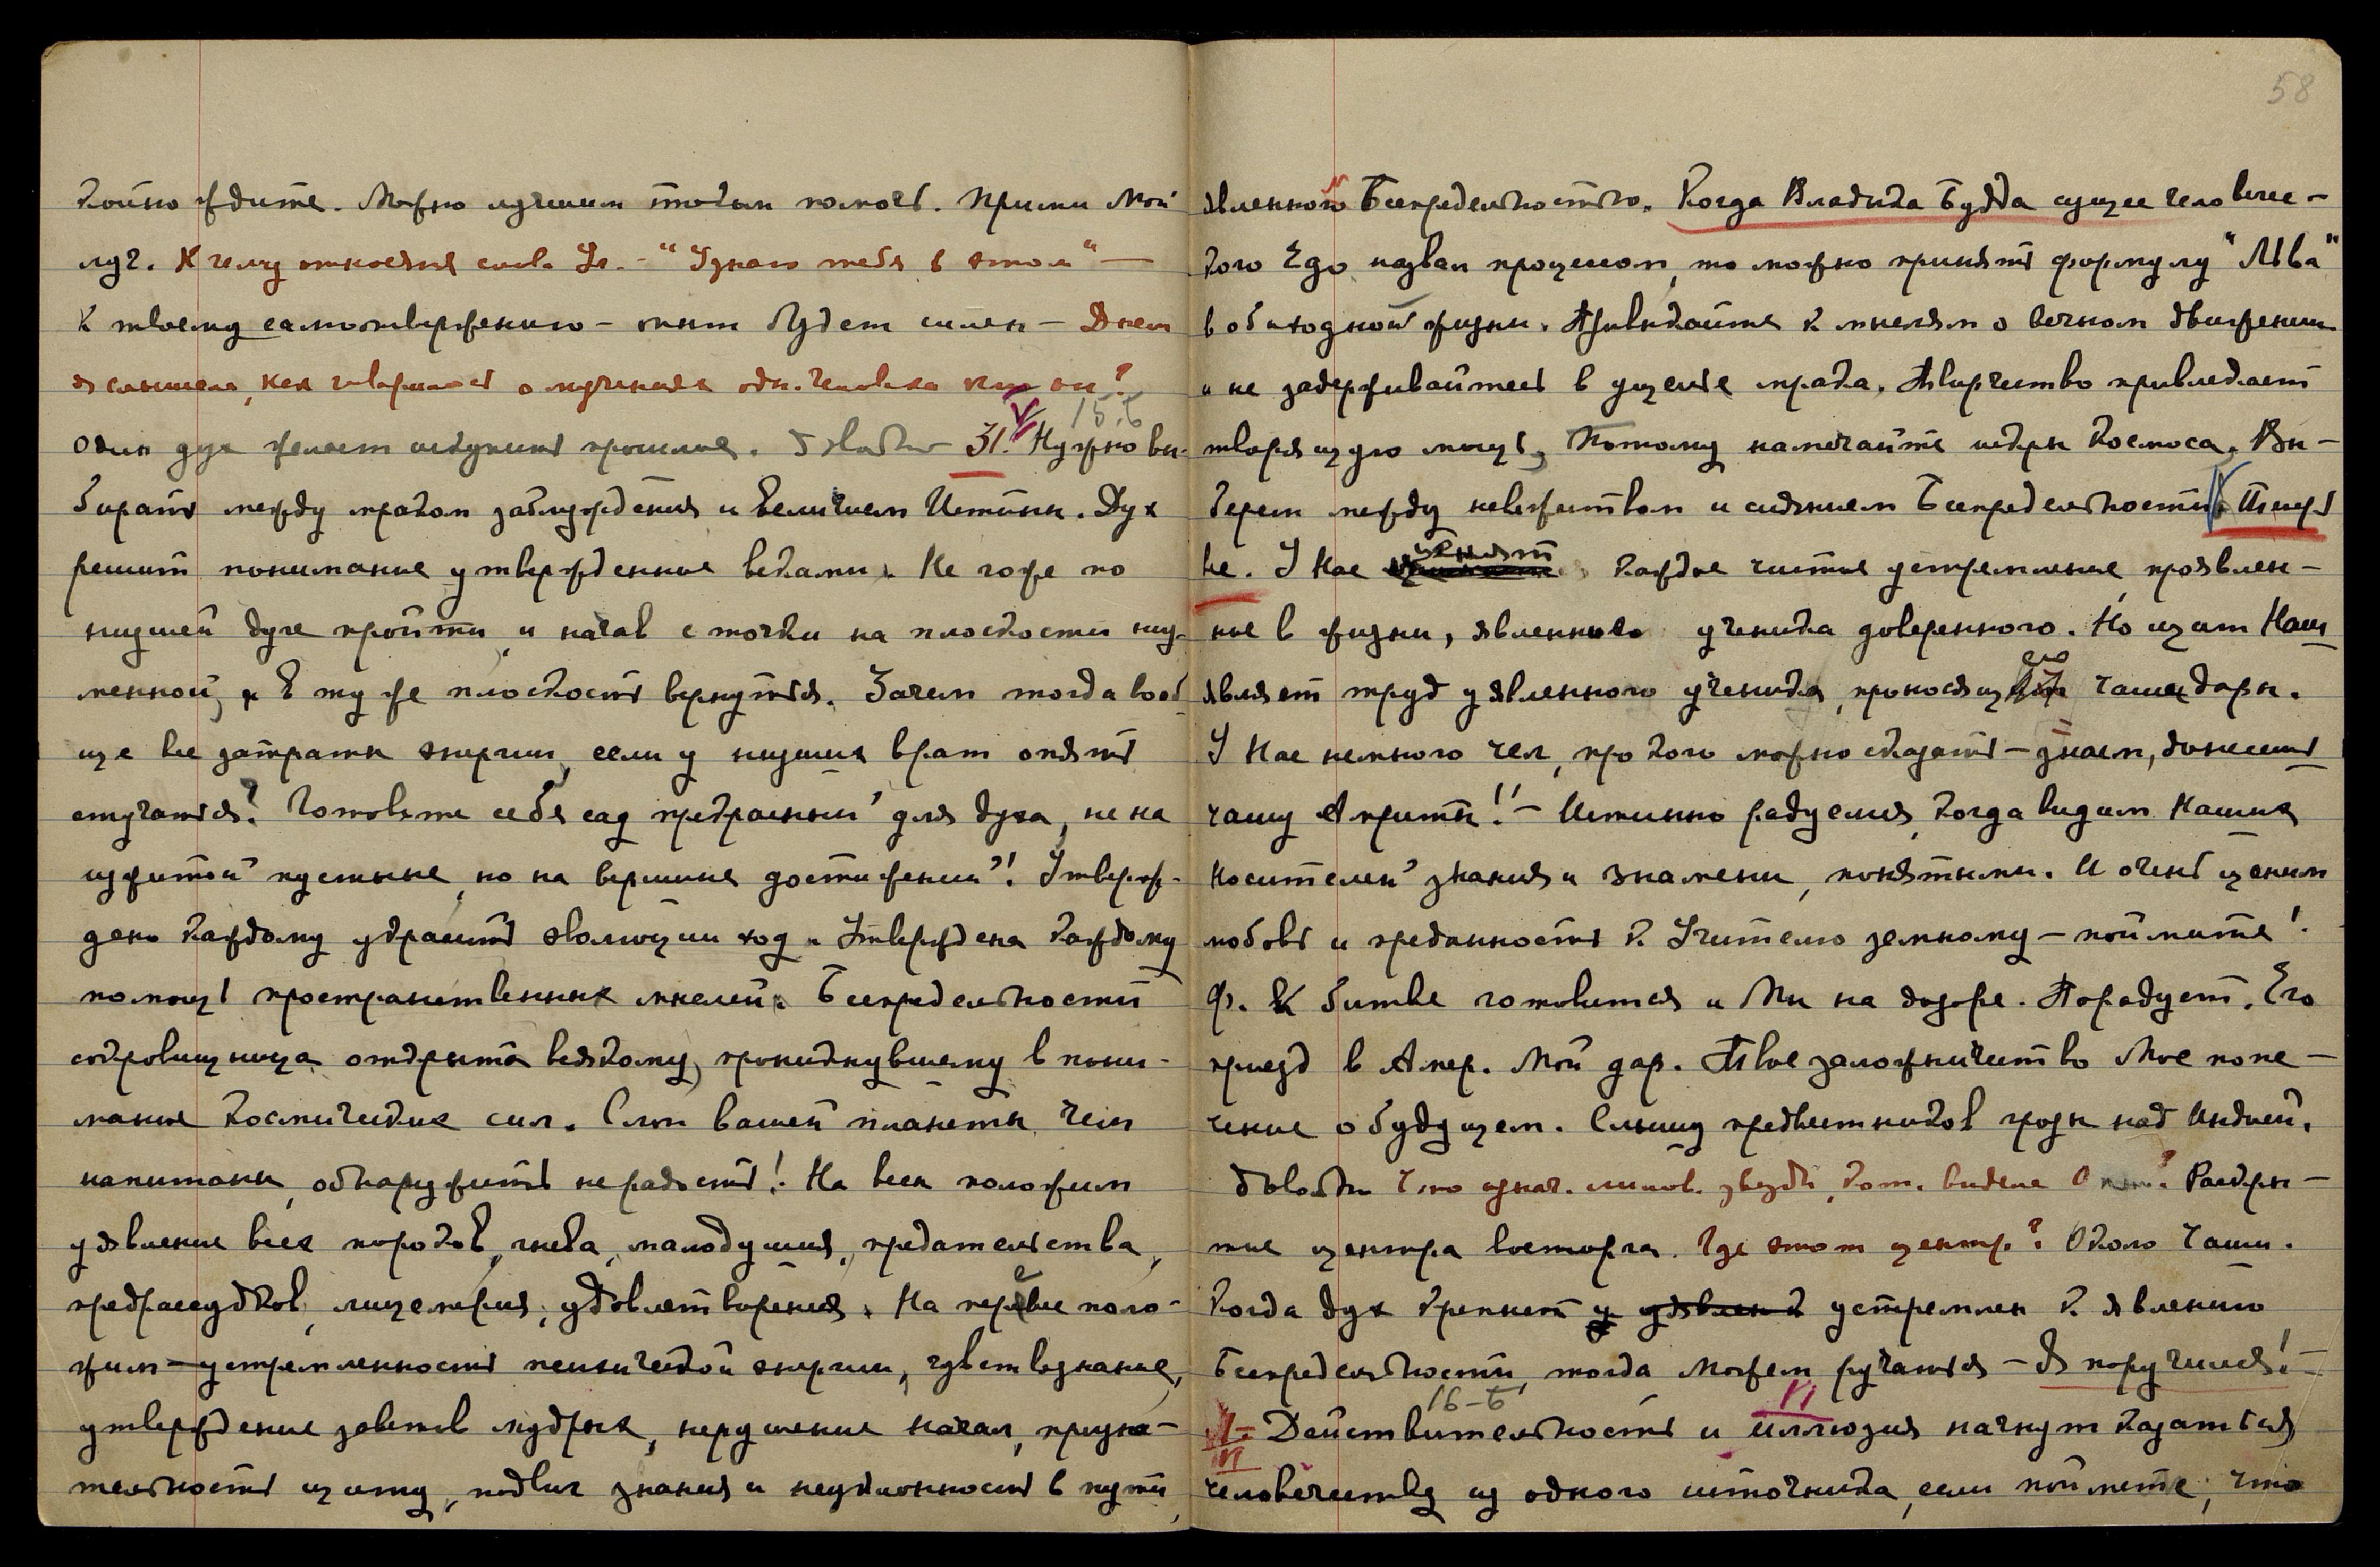 койно ждите. Можно лучшим только помочь. Прими Мой
луч. К чему относятся слова Уч. - "Узнаю тебя в этом" —
К твоему самоотвержению - опыт будет силен - Днем
я слышала, как говорилось о мучениях одн. человека кто он?
Один дух желает искупить прошлое. Довольно 31. V 15.Б Нужно вы-
бирать между мраком заблуждения и Величием Истины. Дух
решит понимание утвержденное веками. Не гоже по
низшей дуге пройти, и начав с точки на плоскости низ-
менной, к ту же плоскость вернуться. Зачем тогда вооб-
ще все затраты энергии, если у низших врат опять
стучаться? Готовьте себе сад прекрасный для духа, не на
изжитой пустыне, но на вершине достижений! Утверж-
дено каждому украсить эволюции ход. Утверждена каждому
помощь пространственных мыслей. Беспредельности
сокровищница открыта всякому, проникнувшему в пони-
мание космических сил. Слои вашей планеты чем
напитаны, обнаружить не радость! На весы положим
уявление всех пороков, гнева, малодушия, предательства,
предрассудков, лицемерия, удовлетворения. На первые поло-
жим — устремленность психической энергии, чувствознание,
утверждение заветов мудрых, нерушение начал, призна-
тельность щиту, подвиг знания и неуклонность в пути,
58
явленной Беспредельностью. Когда Владыка Будда сущее человече-
кого Его назвал процессом, то можно принять формулу "Льва"
в обиходной жизни. Привыкайте к мыслям о вечном движении
и не задерживайтесь в ущелье мрака. Творчество привлекает
творящую мощь, Потому намечайте искры Космоса. Вы-
берем между невежеством и сиянием Беспредельности. Теперь
все. У Нас ценят каждое чистое устремление, проявлен-
ное в жизни, явленного ученика доверенного. Но щит Наш
являет труд уявленного ученика, проносящего чашу дары.
У Нас немного чел, про кого можно сказать — знаем, донесешь
чашу Амриты!! — Истинно радуемся, когда видим Наших
носителей знания и знамени, понятыми. И очень ценим
любовь и преданность к Учителю земному — поймите!
Ф. К битве готовится и Мы на дозоре. Порадует. Его
приезд в Амер. Мой дар. Твое заложничество Мое попе-
чение о будущем. Слышу предвестников грозы над Индией.
Довольно Что означ. лилов. звезды, кот. видела О Раскры-
тие центра восторга. Где этот центр? Около Чаши.
Когда дух крепнет у уявлен к устремлен к явлению
Беспредельности, тогда Можем ручаться — Я поручился! —
16-Б
1 - VI Действительность и иллюзия начнут казаться
человечеству из одного источника, если поймете, что